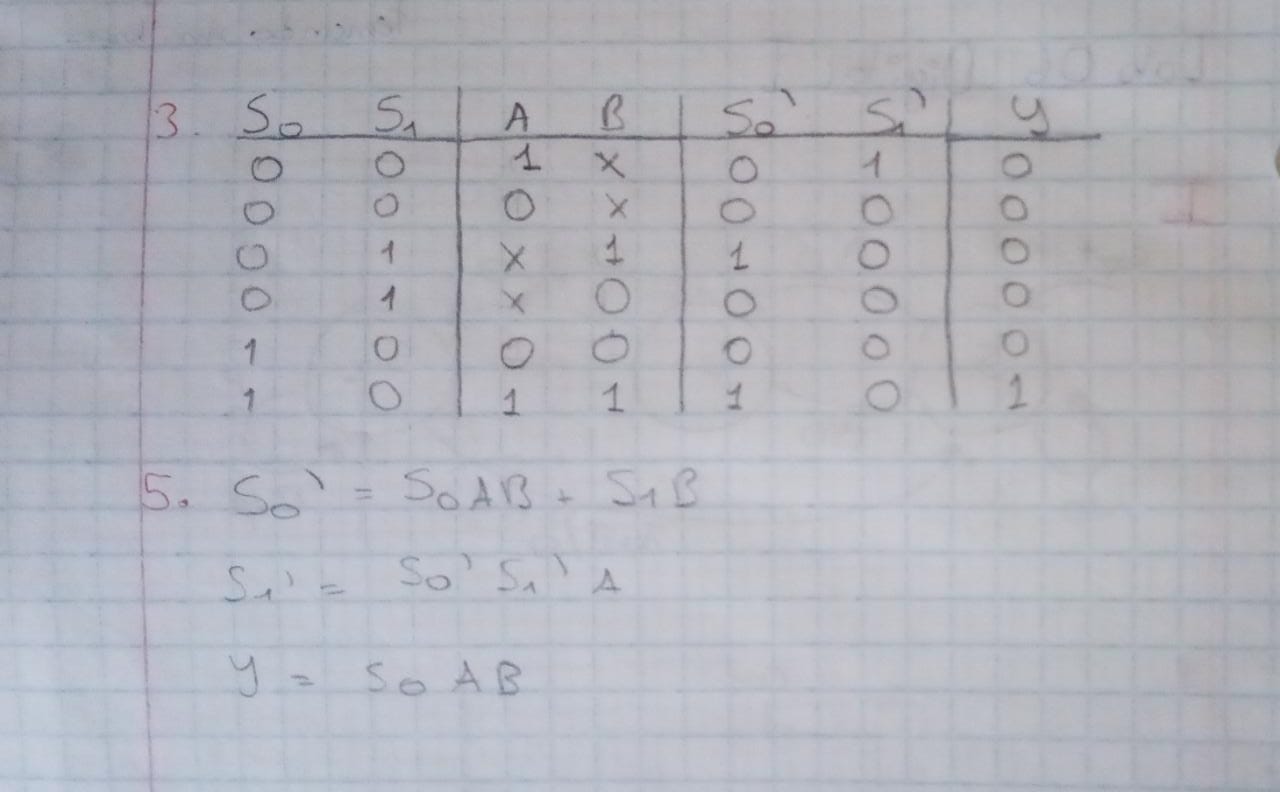 3. S₀ S₁ A B S₀' S₁' Y
0 0 1 x 0 1 0
0 0 0 x 0 0 0
0 1 x 1 1 0 0
0 1 x 0 0 0 0
1 0 0 0 0 0 0
1 0 1 1 1 0 1
5. S₀' = S₀AB + S₁B
S₁' = S₀' S₁' A
Y = S₀ AB